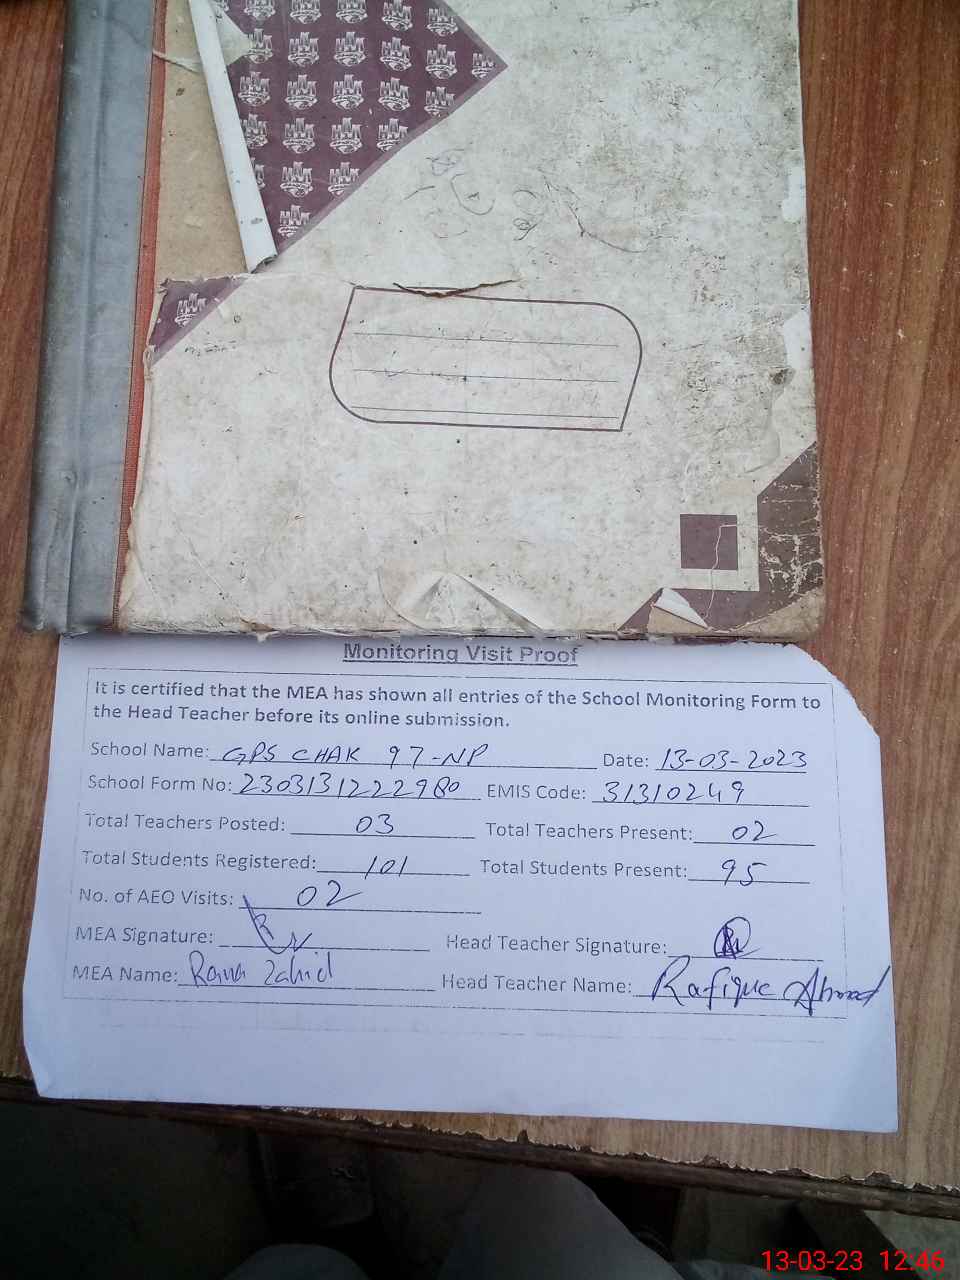 Monitoring Visit Proof
It is certified that the MEA has shown all entries of the School Monitoring Form to
the Head Teacher before its online submission.
School Name: GPS CHAK 97-NP Date: 13-03-2023
School Form No: 2303131222980 EMIS Code: 31310249
Total Teachers Posted: 03 Total Teachers Present: 02
Total Students Registered: 101 Total Students Present: 95
No. of AEO Visits: 02
MEA Signature: Head Teacher Signature:
MEA Name: Rana Zahid Head Teacher Name: Rafique Ahmad
13-03-23 12:46